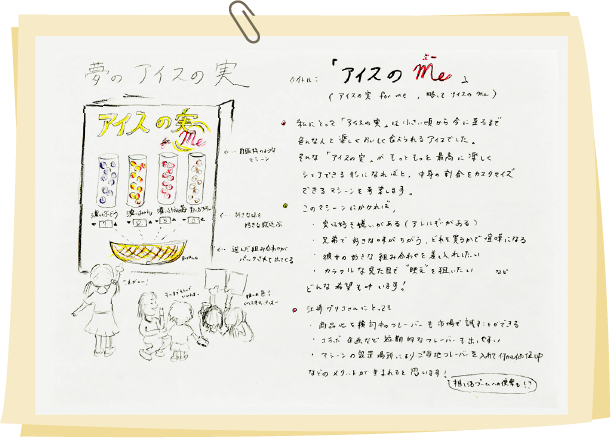 夢の アイスの実
アイスの実
for Me
自販機のような
マシーン
好きな味を
好きな数選ぶ
選んだ組み合わせが
パックされて出てくる
タイトル：「アイスの Me」
（アイスの実 for me 、略して アイスの Me）
私にとって「アイスの実」は小さい頃から今に至るまで
色んな人と楽しくおいしく食べられるアイスでした。
そんな「アイスの実」がもっともっと最高に楽しく
シェアできるようになればと、中身の割合をカスタマイズ
できるマシーンを考案します。
このマシーンにかかれば、
・実は好き嫌いがある（アレルギーがある）
・兄弟で好きな味がちがう、どれを買うかで喧嘩になる
・彼女の好きな組み合わせを差し入れしたい
・カラフルな見た目で"映え"を狙いたい など
どんな希望も叶います！
江崎グリコさんにとっても
・商品化を検討中のフレーバーを市場で試すことができる
・コラボ企画など短期的なフレーバーも出しやすい
・マシーンの設置場所によりご当地フレーバーを入れて付加価値向上
などのメリットが生まれると思います！